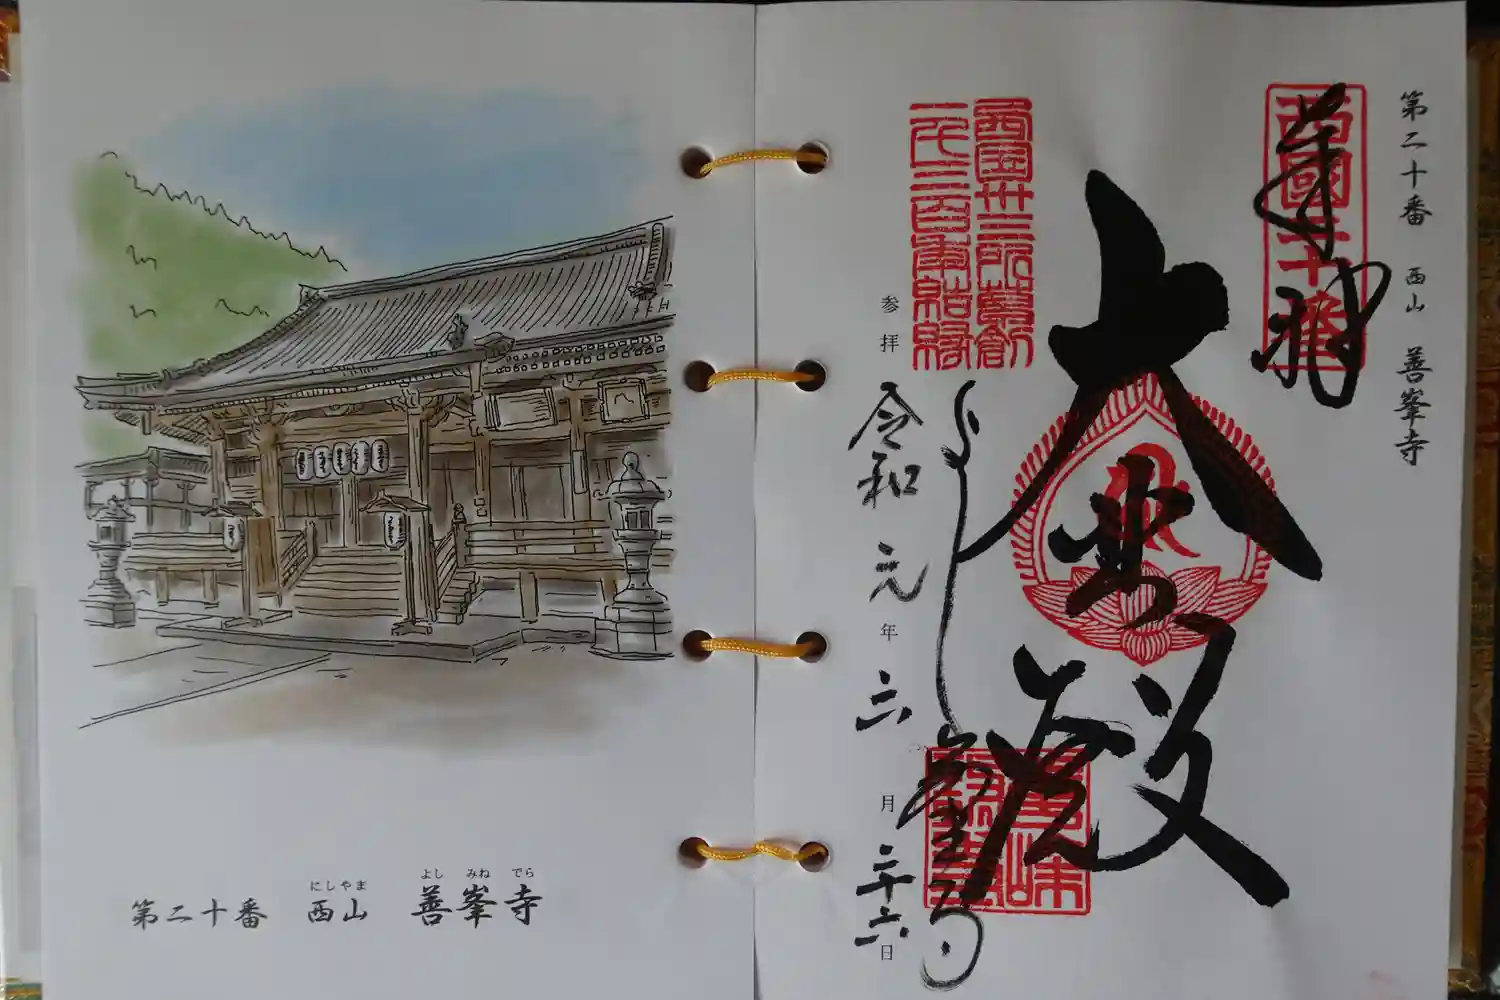 にしやま よしみねでら
第二十番 西山 善峯寺
第二十番 西山 善峯寺
奉拝
西國二十番
大悲殿
西国卅三所草創
一千三百年結縁
善峯寺
参拝 令和元年六月二十六日